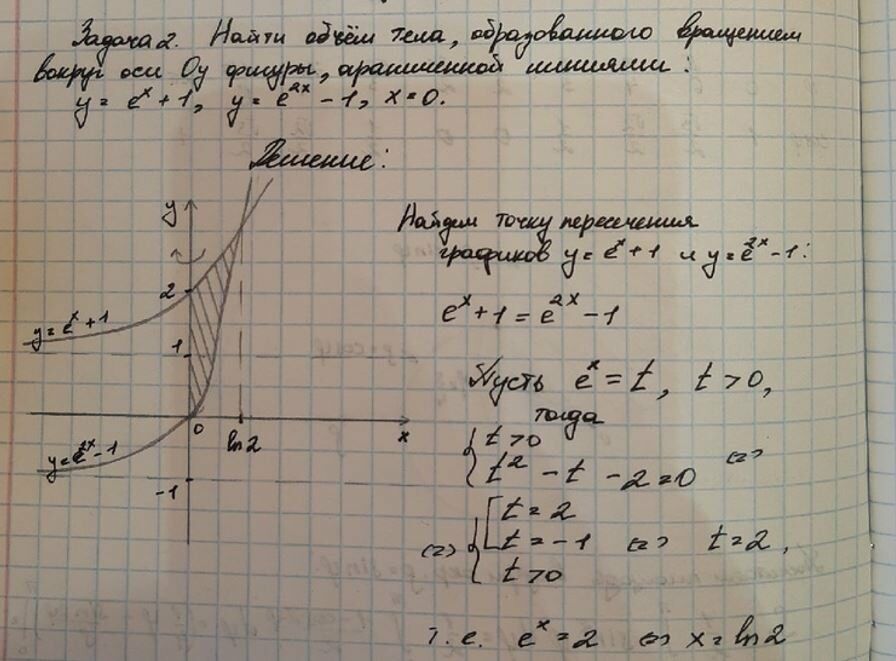 Задача 2. Найти объём тела, образованного вращением
вокруг оси Oy фигуры, ограниченной линиями:
y = e^x + 1, y = e^{2x} - 1, x = 0.
Решение:
y
2
y = e^x + 1
1
0
ln 2
x
y = e^{2x} - 1
-1
Найдем точку пересечения
графиков y = e^x + 1 и y = e^{2x} - 1:
e^x + 1 = e^{2x} - 1
Пусть e^x = t, t > 0,
тогда
{ t > 0
t² - t - 2 = 0 <=>
<=> { [ t = 2
t = -1 <=> t = 2,
t > 0
т. е. e^x = 2 <=> x = ln 2